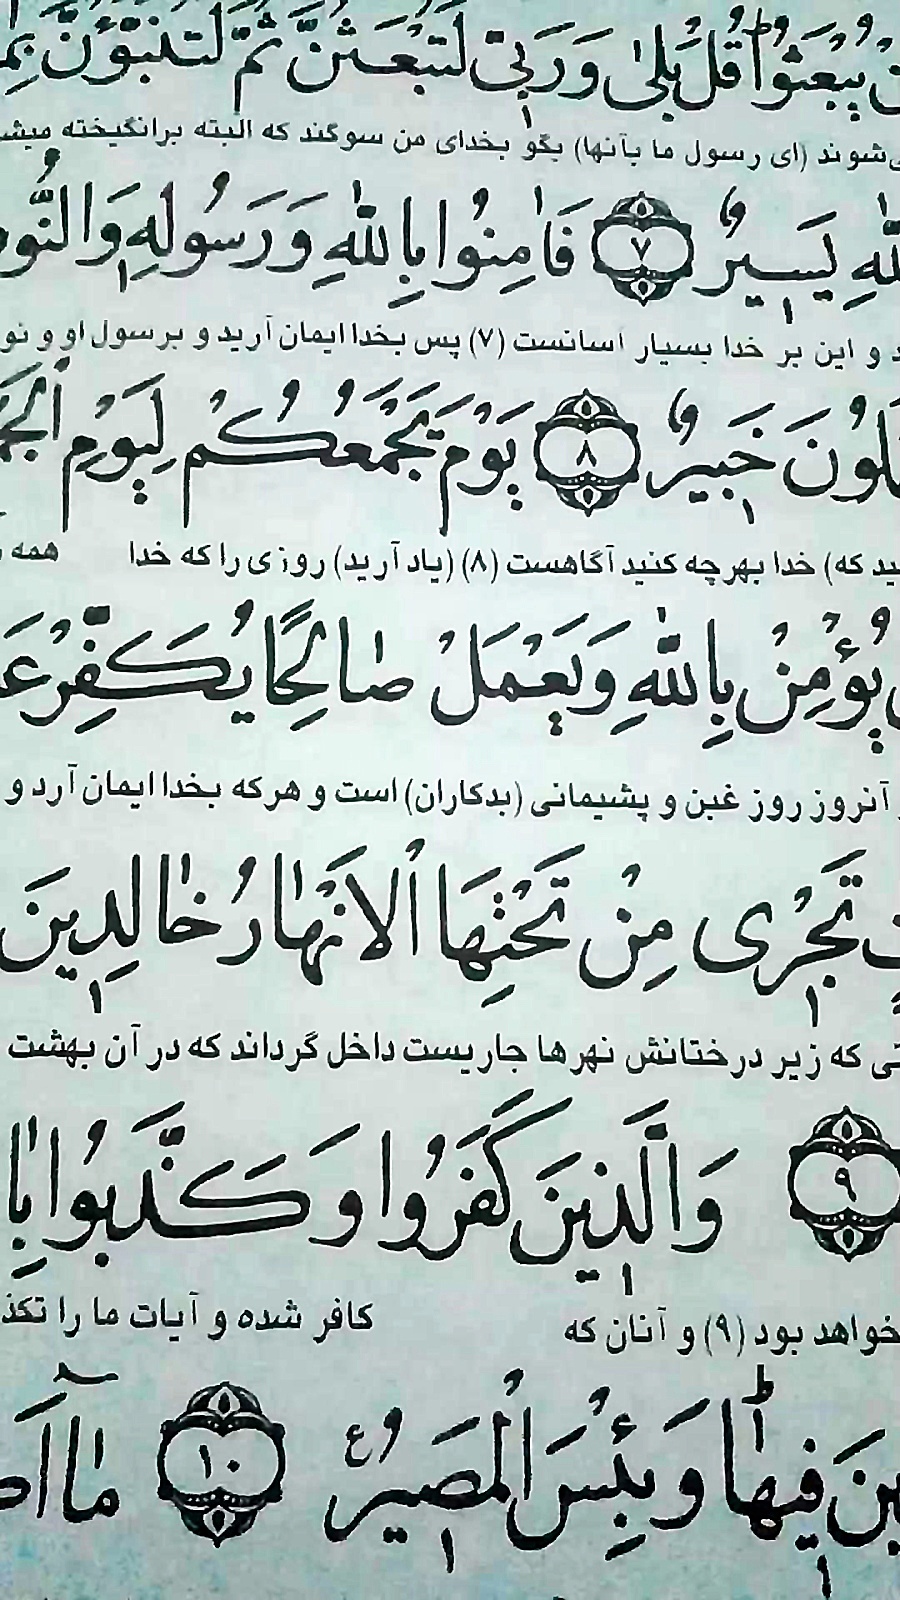 يُبْعَثُوا قُلْ بَلىٰ وَرَبّى لَتُبْعَثُنَّ ثُمَّ لَتُنَبَّؤُنَّ
شوند (ای رسول ما بآنها) بگو بخدای من سوگند که البته برانگیخته
يَسيرٌ ﴿٧﴾ فَاٰمِنُوا بِاللّٰهِ وَرَسُولِهٖ
و این بر خدا بسیار آسانست (۷) پس بخدا ایمان آرید و برسول او و
خَبيرٌ ﴿٨﴾ يَوْمَ يَجْمَعُكُمْ لِيَوْمِ
که) خدا بهرچه کنید آگاهست (۸) (یاد آرید) روزی را که خدا همه
يُؤْمِنْ بِاللّٰهِ وَيَعْمَلْ صٰالِحًا يُكَفِّرْ
آنروز روز غبن و پشیمانی (بدکاران) است و هرکه بخدا ایمان آرد و
تَجْرى مِنْ تَحْتِهَا الْاَنْهٰارُ خٰالِدينَ
که زیر درختانش نهرها جاریست داخل گرداند که در آن بهشت
﴿٩﴾ وَالَّذينَ كَفَرُوا وَ كَذَّبُوا
خواهد بود (۹) و آنان که کافر شده و آیات ما را
فيهٰا وَ بِئْسَ الْمَصيرُ ﴿١٠﴾ مٰا